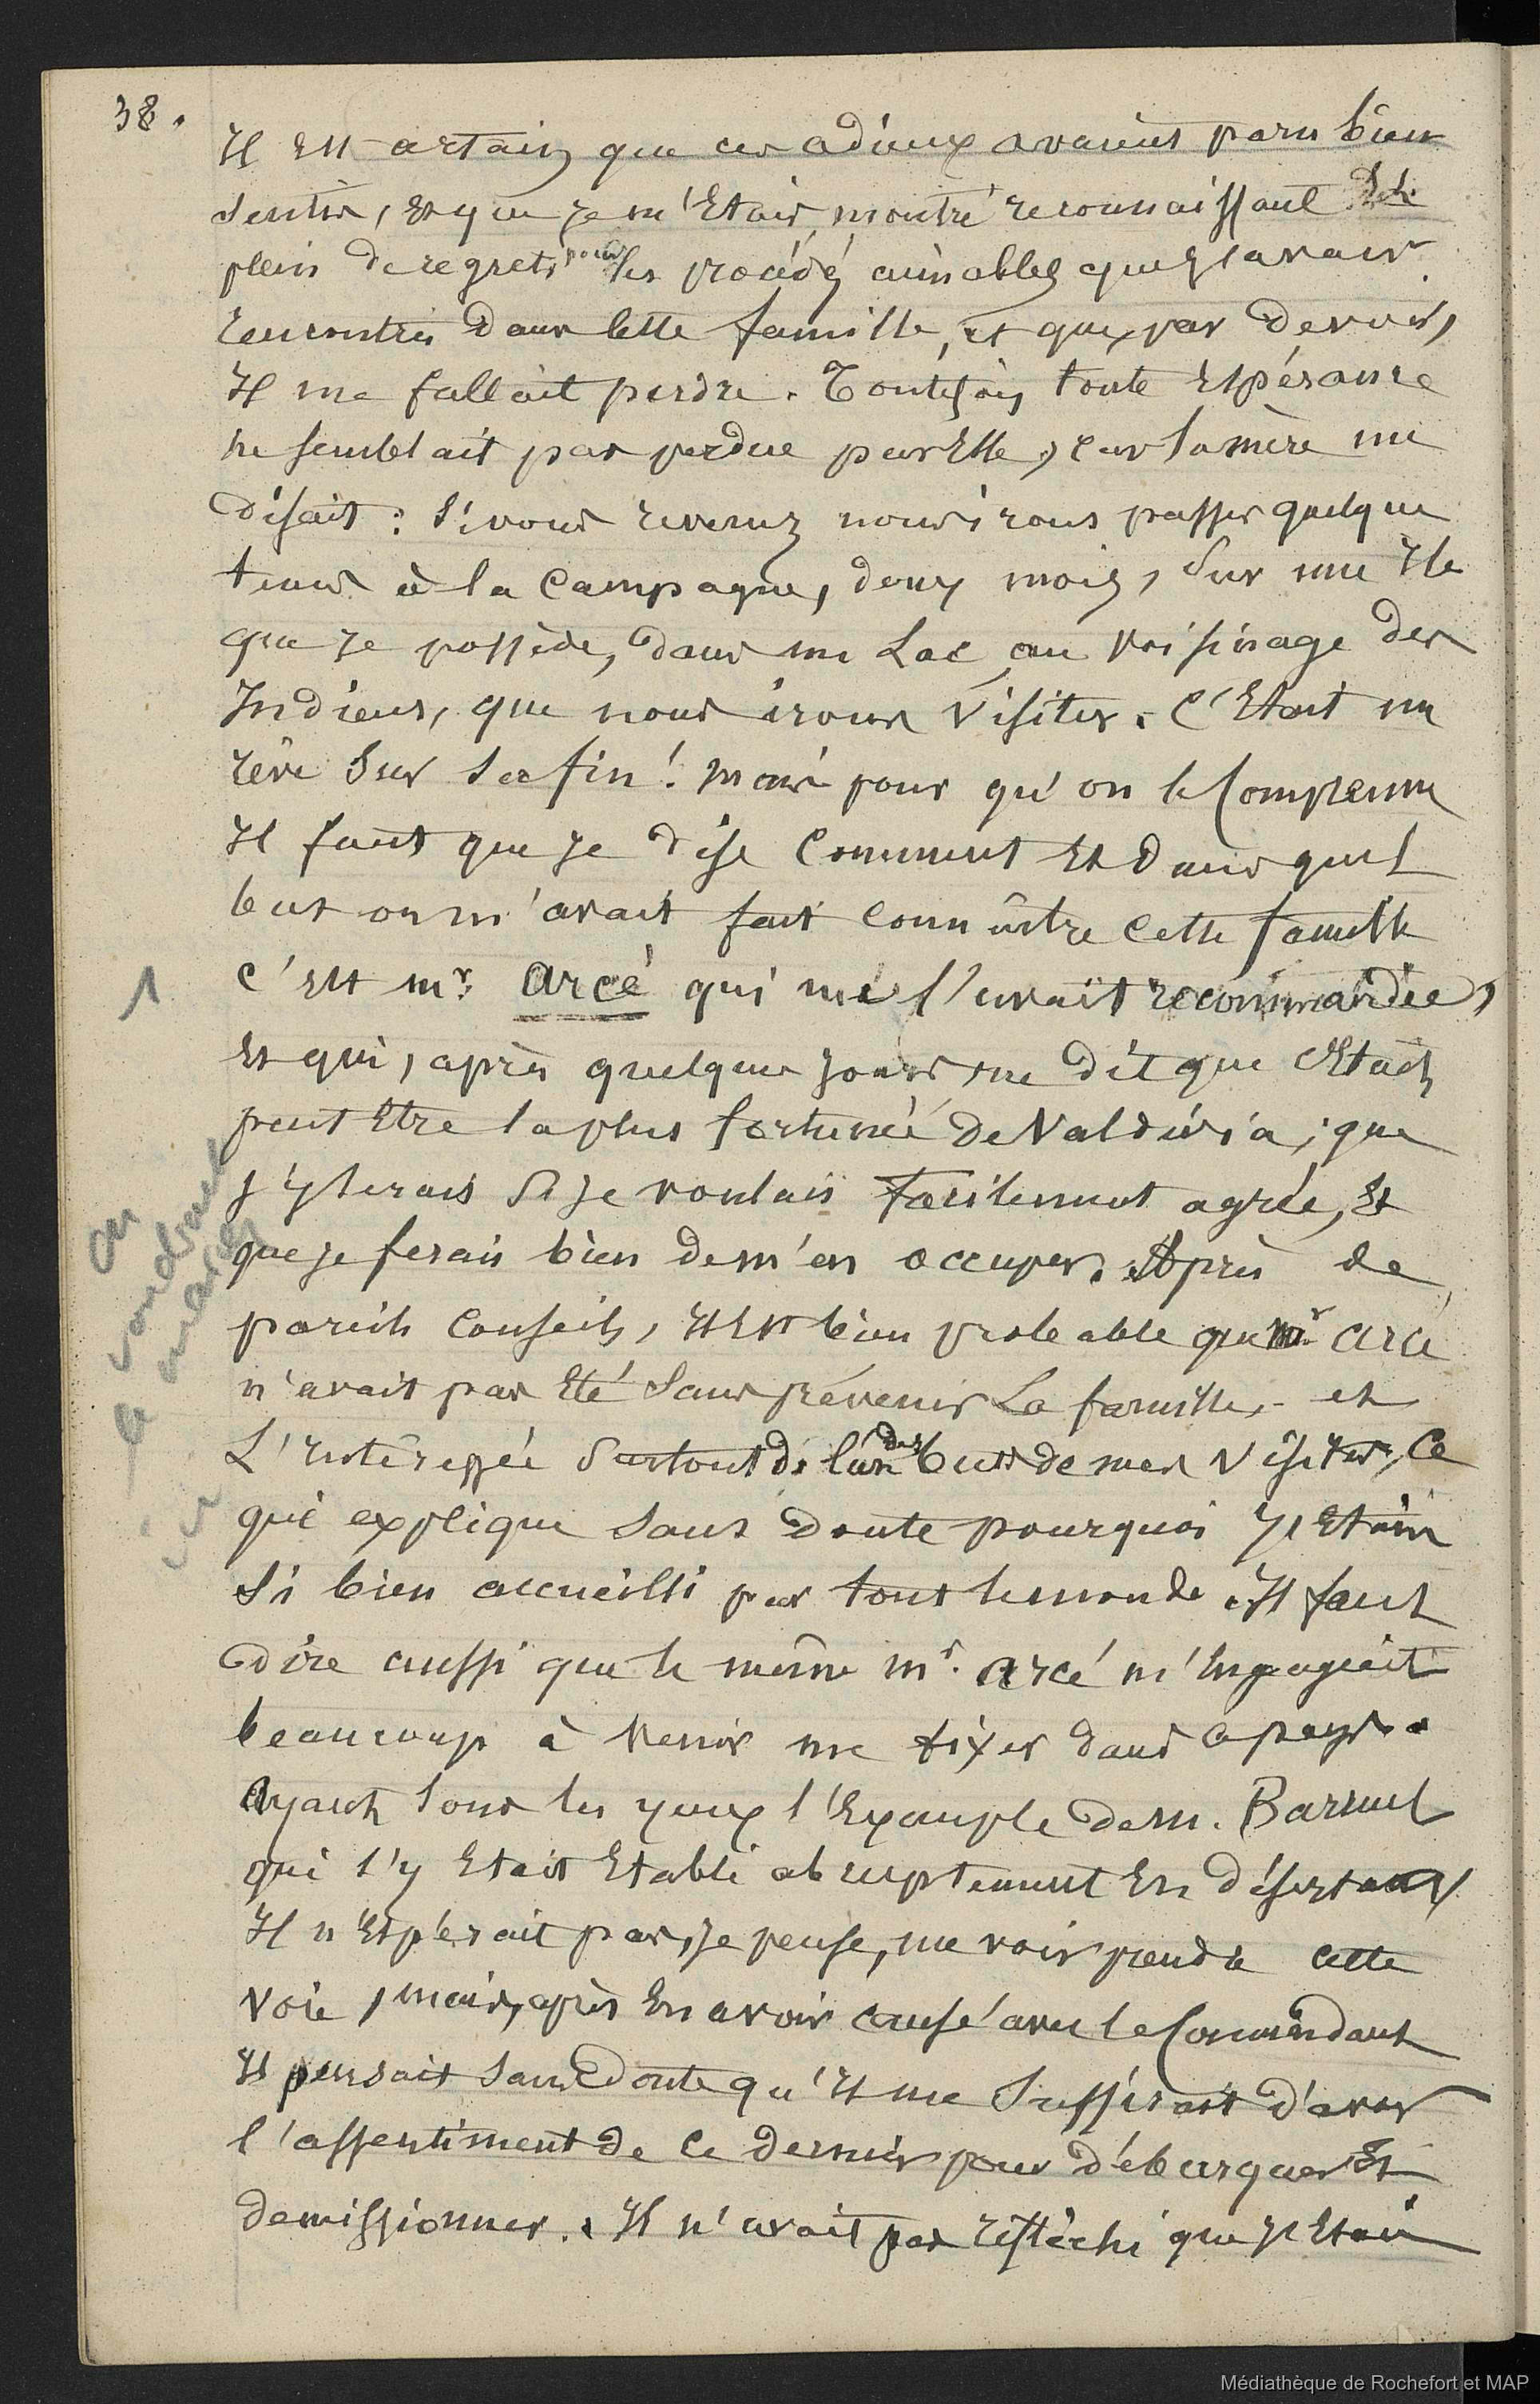 38.
Il est certain que ces adieux avaient paru bien
sentis, et que je m'Etais montré reconnaissant et
plein de regrets pour les procédés aimables que j'avais
rencontrés dans cette famille, et que, par devoir,
Il me fallait perdre. Toutefois toute Espérance
ne semblait pas perdue par Elle, car la mère me
disait : Si vous revenez nous irons passer quelque
tems à la Campagne, deux mois, sur une Ile
que je possède, dans un Lac au voisinage des
Indiens, que nous irons visiter. C'Etait un
rêve sur sa fin ! mais pour qu'on le Comprenne
Il faut que je dise Comment Et dans quel
but on m'avait fait connaître cette famille
1
C'est mr. Arcé qui me l'avait recommandée,
Et qui, après quelques jours me dit que C'Etait
peut Etre la plus fortunée de Valdivia ; que
j'y serais si je voulais facilement agréé, Et
on
voudrait
le marier
que je ferais bien de m'en occuper. Après de
pareils Conseils, Il Est bien probable que mr Arcé
n'avait pas Eté sans prévenir La famille, et
L'intéressée surtout de l'un des buts de mes visites, Ce
qui explique sans doute pourquoi j'Etais
si bien accueilli par tout le monde. Il faut
dire aussi que le même mr. Arcé m'Engageait
beaucoup à venir me fixer dans ce pays.
Ayant sous les yeux l'Exemple de m. Barruel
qui s'y Etait Etabli abruptement En désertant
Il n'Espérait pas, je pense, me voir prendre cette
voie, mais, après En avoir causé avec le Commandant
Il pensait sans doute qu'Il me suffirait d'avoir
l'assentiment de ce dernier pour débarquer Et
demissionner. Il n'avait pas réfléchi que j'Etais
Médiathèque de Rochefort et MAP